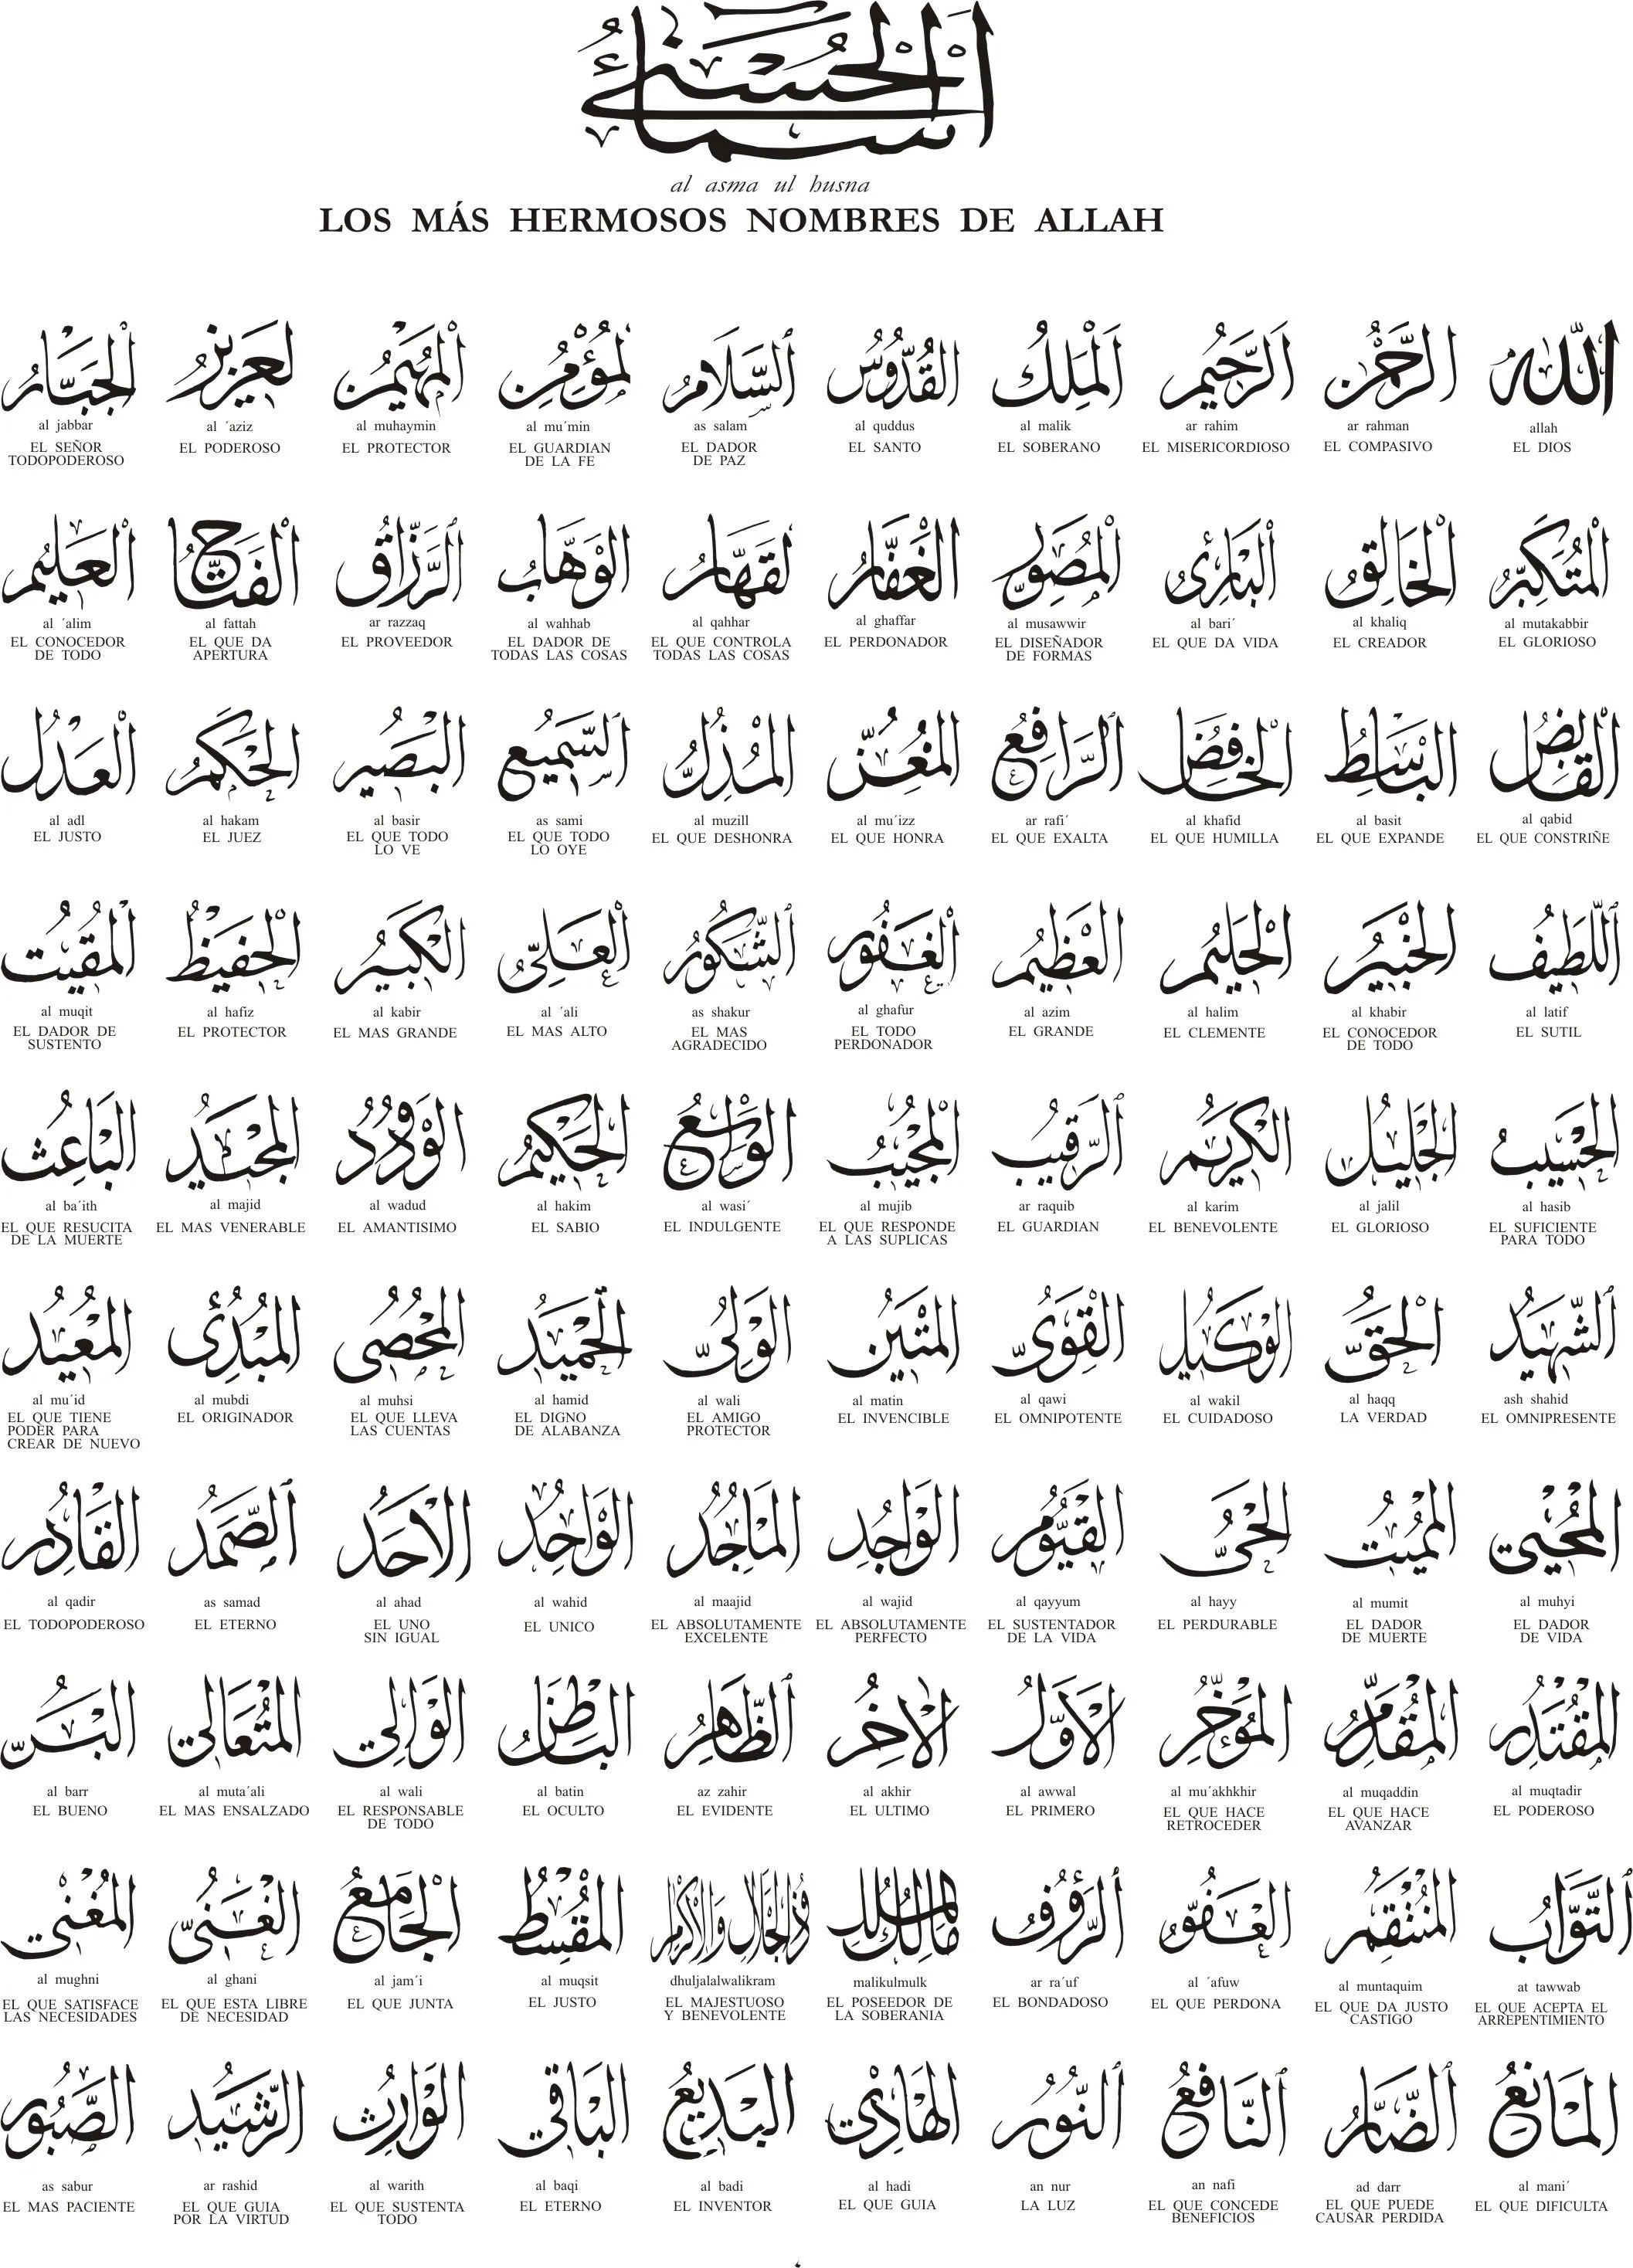 اسماء الحسنى
al asma ul husna
LOS MÁS HERMOSOS NOMBRES DE ALLAH
الله
allah
EL DIOS
الرحمن
ar rahman
EL COMPASIVO
الرحيم
ar rahim
EL MISERICORDIOSO
الملك
al malik
EL SOBERANO
القدوس
al quddus
EL SANTO
السلام
as salam
EL DADOR
DE PAZ
لمؤمن
al mu´min
EL GUARDIAN
DE LA FE
المهيمن
al muhaymin
EL PROTECTOR
لعزيز
al ´aziz
EL PODEROSO
الجبار
al jabbar
EL SEÑOR
TODOPODEROSO
المتكبر
al mutakabbir
EL GLORIOSO
الخالق
al khaliq
EL CREADOR
البارئ
al bari´
EL QUE DA VIDA
المصور
al musawwir
EL DISEÑADOR
DE FORMAS
الغفار
al ghaffar
EL PERDONADOR
لقهار
al qahhar
EL QUE CONTROLA
TODAS LAS COSAS
الوهاب
al wahhab
EL DADOR DE
TODAS LAS COSAS
الرزاق
ar razzaq
EL PROVEEDOR
الفتاح
al fattah
EL QUE DA
APERTURA
العليم
al ´alim
EL CONOCEDOR
DE TODO
القابض
al qabid
EL QUE CONSTRIÑE
الباسط
al basit
EL QUE EXPANDE
الخافض
al khafid
EL QUE HUMILLA
الرافع
ar rafi´
EL QUE EXALTA
المعز
al mu´izz
EL QUE HONRA
المذل
al muzill
EL QUE DESHONRA
السميع
as sami
EL QUE TODO
LO OYE
البصير
al basir
EL QUE TODO
LO VE
الحكم
al hakam
EL JUEZ
العدل
al adl
EL JUSTO
اللطيف
al latif
EL SUTIL
الخبير
al khabir
EL CONOCEDOR
DE TODO
الحليم
al halim
EL CLEMENTE
العظيم
al azim
EL GRANDE
الغفور
al ghafur
EL TODO
PERDONADOR
الشكور
as shakur
EL MAS
AGRADECIDO
العلى
al ´ali
EL MAS ALTO
الكبير
al kabir
EL MAS GRANDE
الحفيظ
al hafiz
EL PROTECTOR
المقيت
al muqit
EL DADOR DE
SUSTENTO
الحسيب
al hasib
EL SUFICIENTE
PARA TODO
الجليل
al jalil
EL GLORIOSO
الكريم
al karim
EL BENEVOLENTE
الرقيب
ar raquib
EL GUARDIAN
المجيب
al mujib
EL QUE RESPONDE
A LAS SUPLICAS
الواسع
al wasi´
EL INDULGENTE
الحكيم
al hakim
EL SABIO
الودود
al wadud
EL AMANTISIMO
المجيد
al majid
EL MAS VENERABLE
الباعث
al ba´ith
EL QUE RESUCITA
DE LA MUERTE
الشهيد
ash shahid
EL OMNIPRESENTE
الحق
al haqq
LA VERDAD
الوكيل
al wakil
EL CUIDADOSO
القوى
al qawi
EL OMNIPOTENTE
المتين
al matin
EL INVENCIBLE
الولى
al wali
EL AMIGO
PROTECTOR
الحميد
al hamid
EL DIGNO
DE ALABANZA
المحصى
al muhsi
EL QUE LLEVA
LAS CUENTAS
المبدئ
al mubdi
EL ORIGINADOR
المعيد
al mu´id
EL QUE TIENE
PODER PARA
CREAR DE NUEVO
المحيي
al muhyi
EL DADOR
DE VIDA
المميت
al mumit
EL DADOR
DE MUERTE
الحى
al hayy
EL PERDURABLE
القيوم
al qayyum
EL SUSTENTADOR
DE LA VIDA
الواجد
al wajid
EL ABSOLUTAMENTE
PERFECTO
الماجد
al maajid
EL ABSOLUTAMENTE
EXCELENTE
الواحد
al wahid
EL UNICO
الاحد
al ahad
EL UNO
SIN IGUAL
الصمد
as samad
EL ETERNO
القادر
al qadir
EL TODOPODEROSO
المقتدر
al muqtadir
EL PODEROSO
المقدم
al muqaddin
EL QUE HACE
AVANZAR
المؤخر
al mu´akhkhir
EL QUE HACE
RETROCEDER
الاول
al awwal
EL PRIMERO
الاخر
al akhir
EL ULTIMO
الظاهر
az zahir
EL EVIDENTE
الباطن
al batin
EL OCULTO
الوالي
al wali
EL RESPONSABLE
DE TODO
المتعالي
al muta´ali
EL MAS ENSALZADO
البر
al barr
EL BUENO
التواب
at tawwab
EL QUE ACEPTA EL
ARREPENTIMIENTO
المنتقم
al muntaquim
EL QUE DA JUSTO
CASTIGO
العفو
al ´afuw
EL QUE PERDONA
الرؤف
ar ra´uf
EL BONDADOSO
مالك الملك
malikulmulk
EL POSEEDOR DE
LA SOBERANIA
ذوالجلال والاكرام
dhuljalalwalikram
EL MAJESTUOSO
Y BENEVOLENTE
المقسط
al muqsit
EL JUSTO
الجامع
al jam´i
EL QUE JUNTA
الغنى
al ghani
EL QUE ESTA LIBRE
DE NECESIDAD
المغني
al mughni
EL QUE SATISFACE
LAS NECESIDADES
المانع
al mani´
EL QUE DIFICULTA
الضار
ad darr
EL QUE PUEDE
CAUSAR PERDIDA
النافع
an nafi
EL QUE CONCEDE
BENEFICIOS
النور
an nur
LA LUZ
الهادي
al hadi
EL QUE GUIA
البديع
al badi
EL INVENTOR
الباقي
al baqi
EL ETERNO
الوارث
al warith
EL QUE SUSTENTA
TODO
الرشيد
ar rashid
EL QUE GUIA
POR LA VIRTUD
الصبور
as sabur
EL MAS PACIENTE